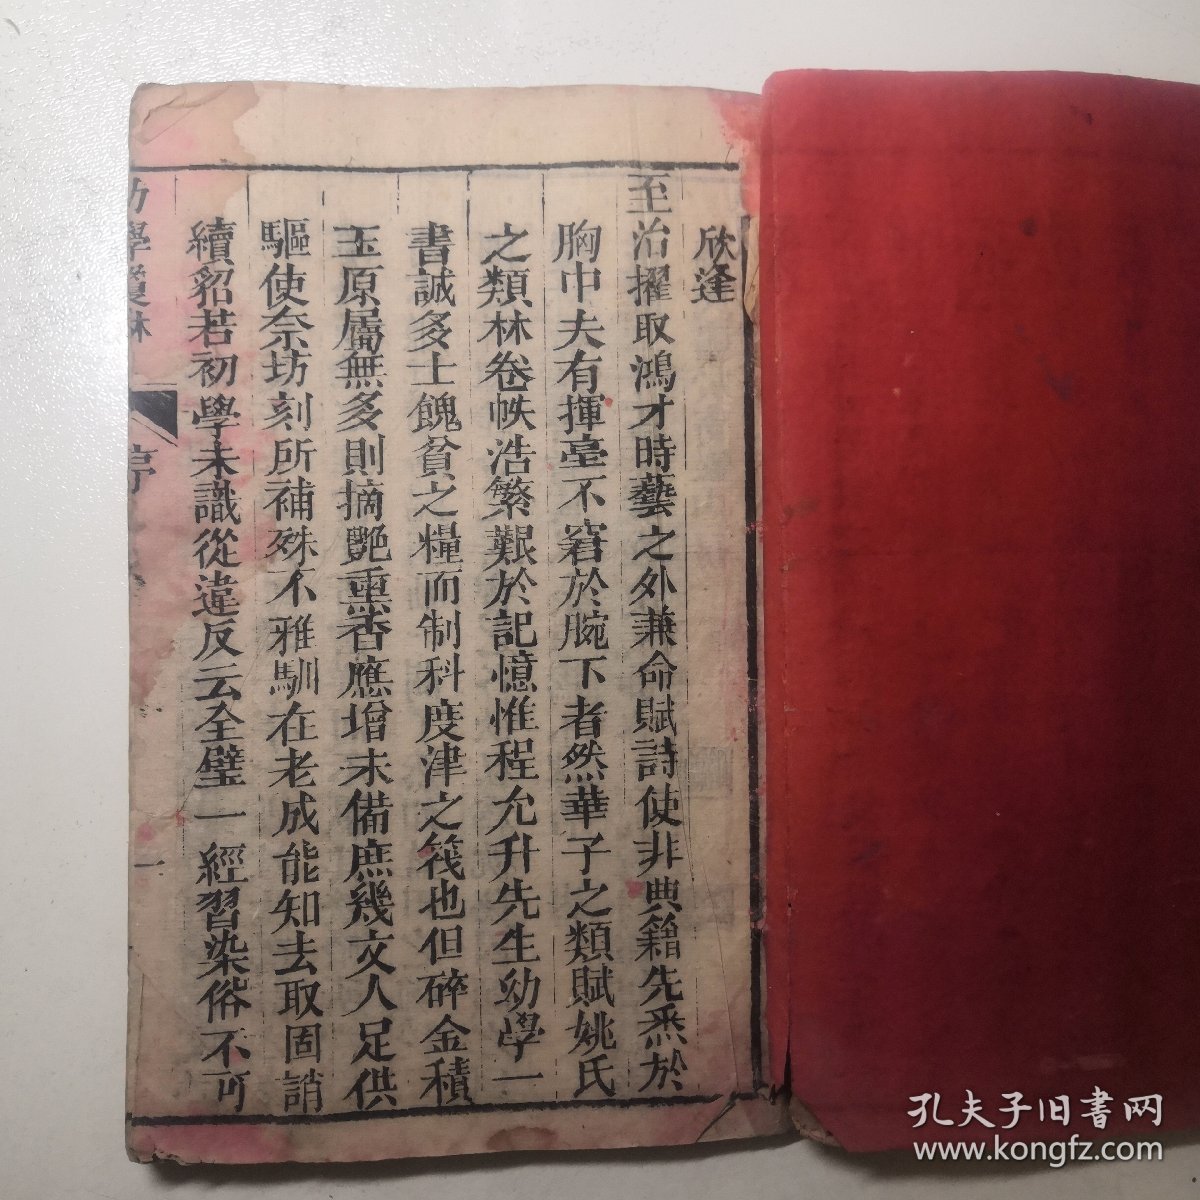 欣逢
至治擢取鴻才時藝之外兼命賦詩使非典籍先悉於
胸中夫有揮毫不窘於腕下者然華子之類賦姚氏
之類林卷帙浩繁艱於記憶惟程允升先生幼學一
書誠多士餽貧之糧而制科度津之筏也但碎金積
玉原屬無多則摘艷熏香應增未備庶幾文人足供
驅使奈坊刻所補殊不雅馴在老成能知去取固誚
續貂若初學未識從違反云全璧一經習染俗不可
幼學瓊林 序 一
孔夫子旧書网
www.kongfz.com